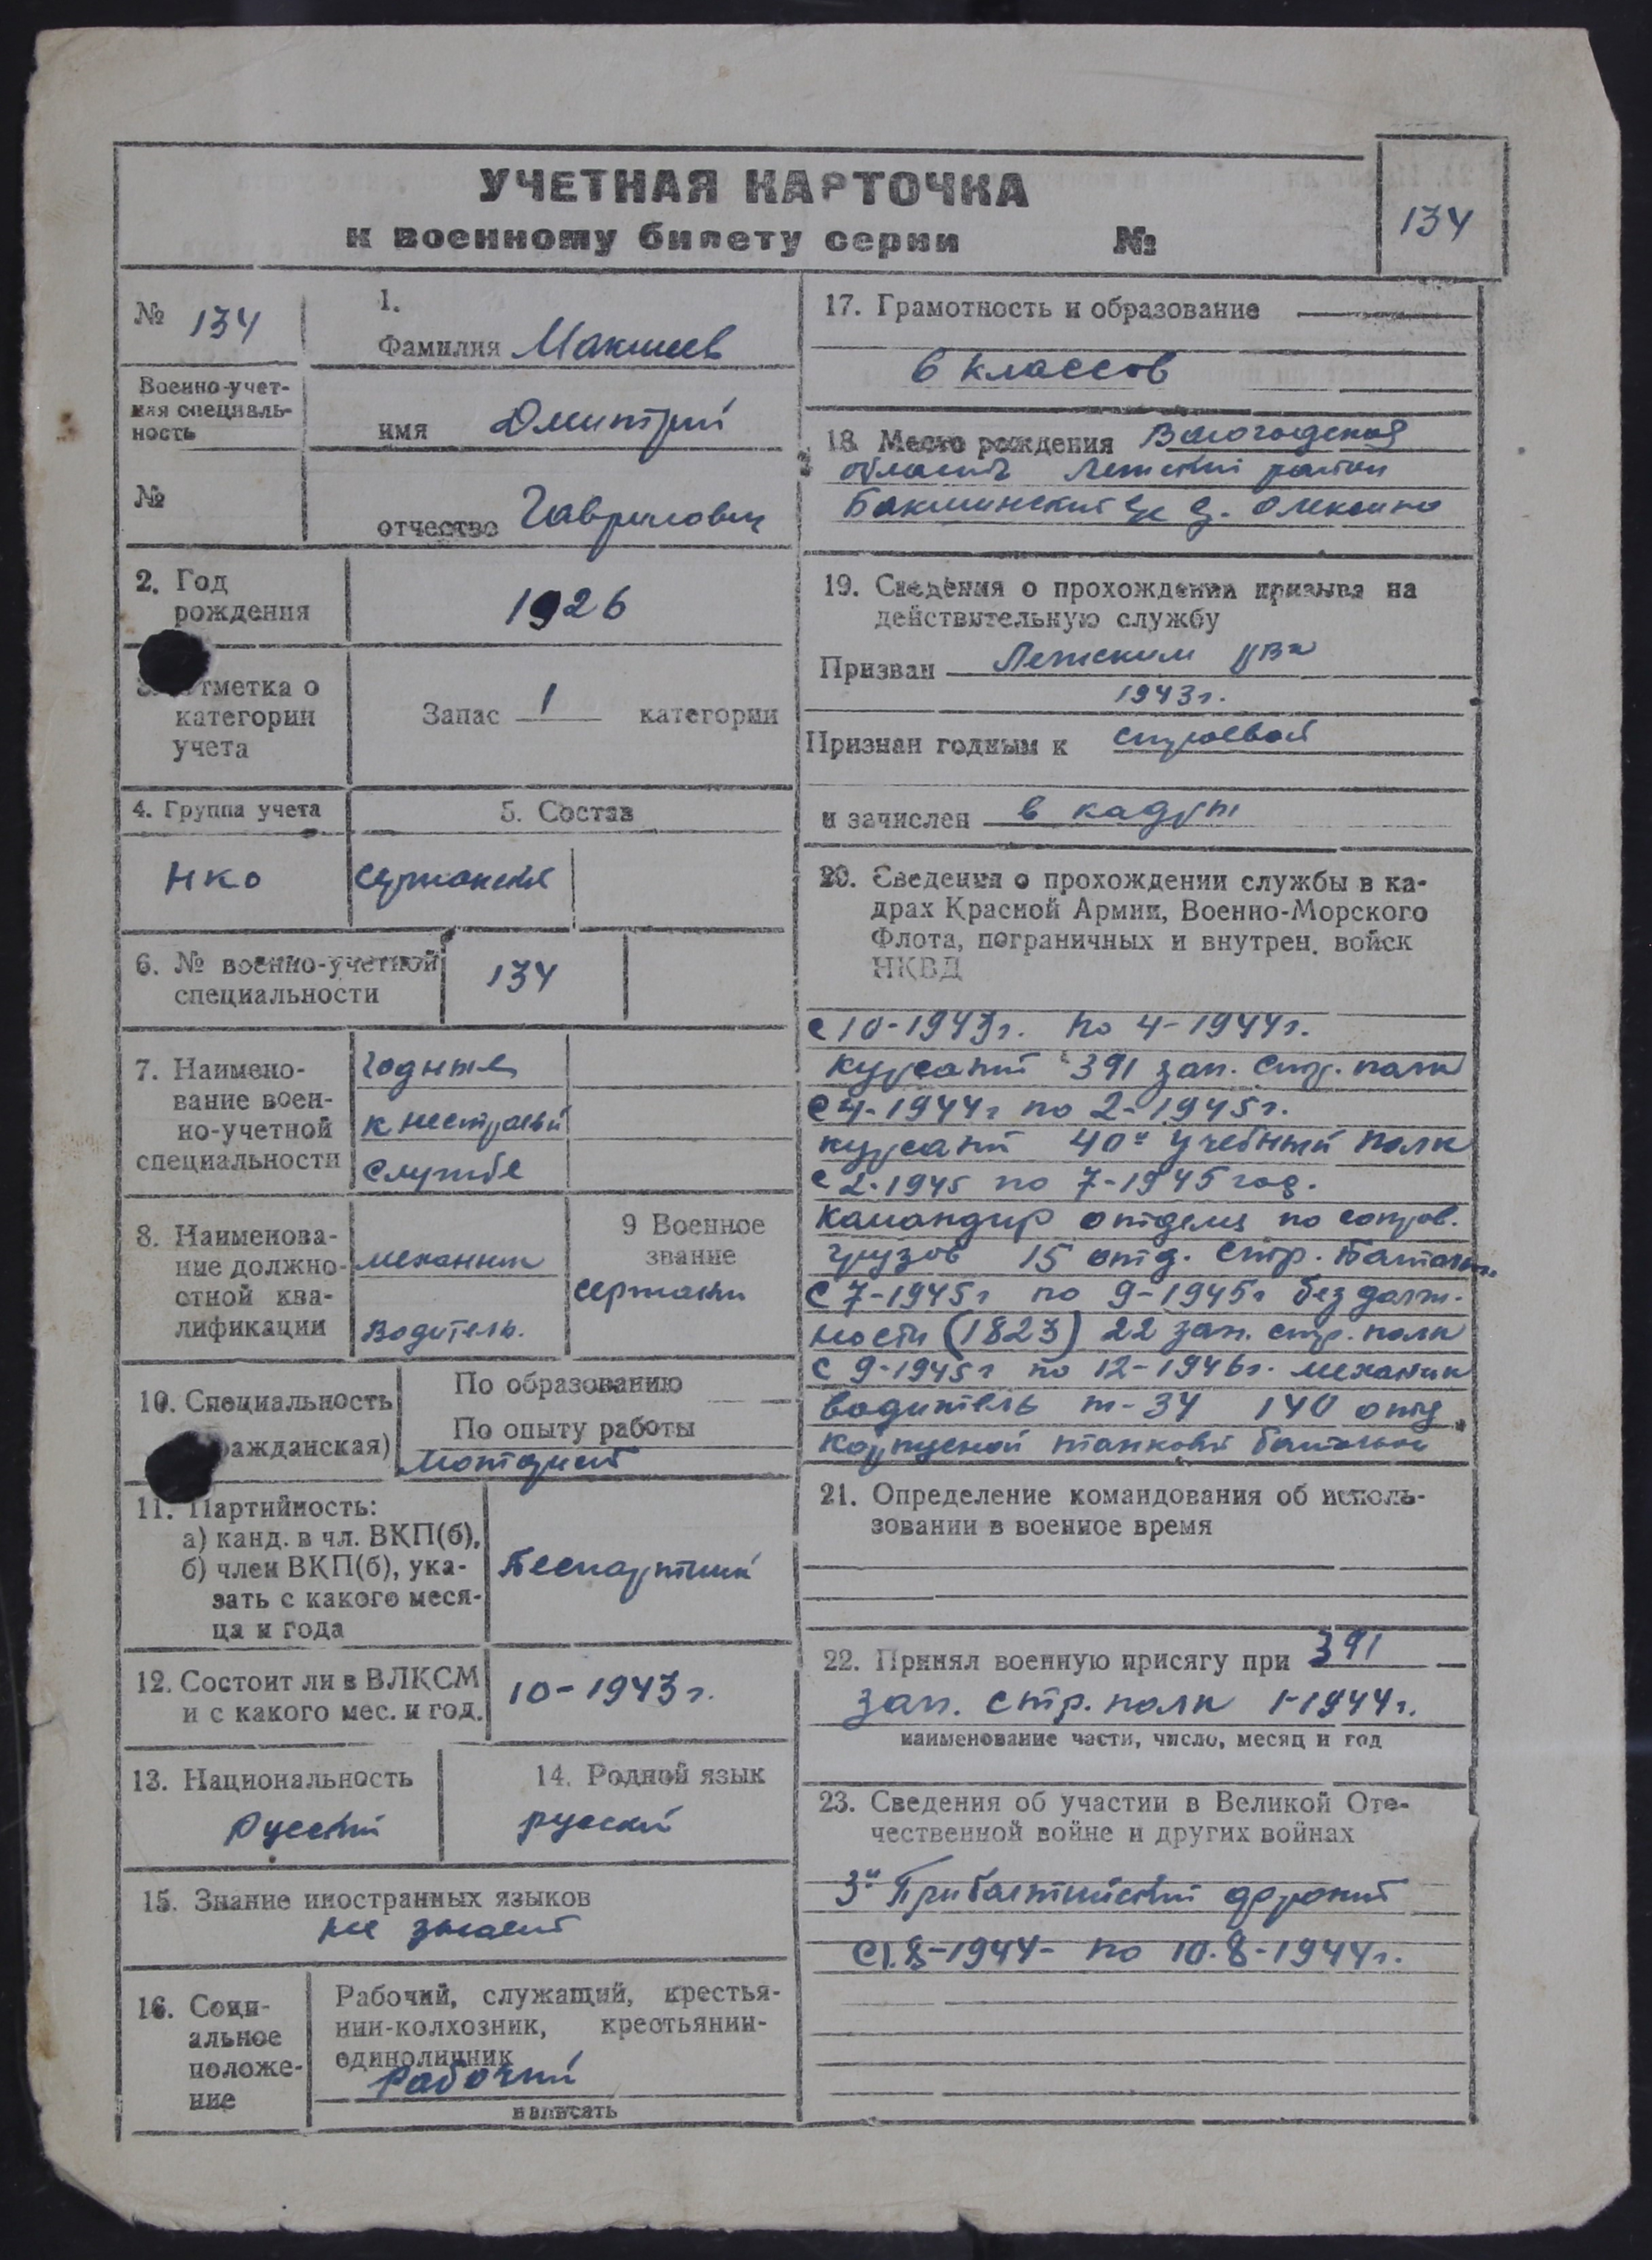 УЧЕТНАЯ КАРТОЧКА
к военному билету серии №
134
№ 134
1.
Фамилия Макшеев
Военно-учет-
ная специаль-
ность
имя Дмитрий
№
отчество Гаврилович
2. Год
рождения
1926
отметка о
категории
учета
Запас 1 категории
4. Группа учета
5. Состав
НКО
сержантск
6. № военно-учетной
специальности
134
7. Наимено-
вание воен-
но-учетной
специальности
годные
к нестроевой
службе
8. Наименова-
ние должно-
стной ква-
лификации
механик
Водитель.
9 Военное
звание
сержант
10. Специальность
ражданская)
По образованию —
По опыту работы
Моторист
11. Партийность:
а) канд. в чл. ВКП(б),
б) член ВКП(б), ука-
зать с какого меся-
ца и года
Беспартийн
12. Состоит ли в ВЛКСМ
и с какого мес. и год.
10-1943г.
13. Национальность
Русский
14. Родной язык
русский
15. Знание иностранных языков
не знает
16. Соци-
альное
положе-
ние
Рабочий, служащий, крестья-
нин-колхозник, крестьянин-
единоличник
Рабочий
написать
17. Грамотность и образование
6 классов
18 Место рождения Вологодская
область район
Бакшинский с/с д. Олексино
19. Сведения о прохождении призыва на
действительную службу
Призван РВК
1943г.
Признан годным к строевой
и зачислен в кадры
20. Сведения о прохождении службы в ка-
драх Красной Армии, Военно-Морского
Флота, пограничных и внутрен. войск
НКВД
с 10-1943г. по 4-1944г.
курсант 391 зап. стр. полк
с 4-1944г по 2-1945г.
курсант 40й учебный полк
с 2-1945 по 7-1945 год.
командир отделен по сопров.
грузов 15 отд. стр. батальон.
С 7-1945г по 9-1945г без долж-
ности (1823) 22 зап. стр. полк
с 9-1945г по 12-1946г. механик
водитель т-34 140 отд.
корпусной танковый батальон
21. Определение командования об исполь-
зовании в военное время
22. Принял военную присягу при 391
зап. стр. полк 1-1944г.
наименование части, число, месяц и год
23. Сведения об участии в Великой Оте-
чественной войне и других войнах
3й Прибалтийский фронт
с 1.8-1944- по 10.8-1944г.